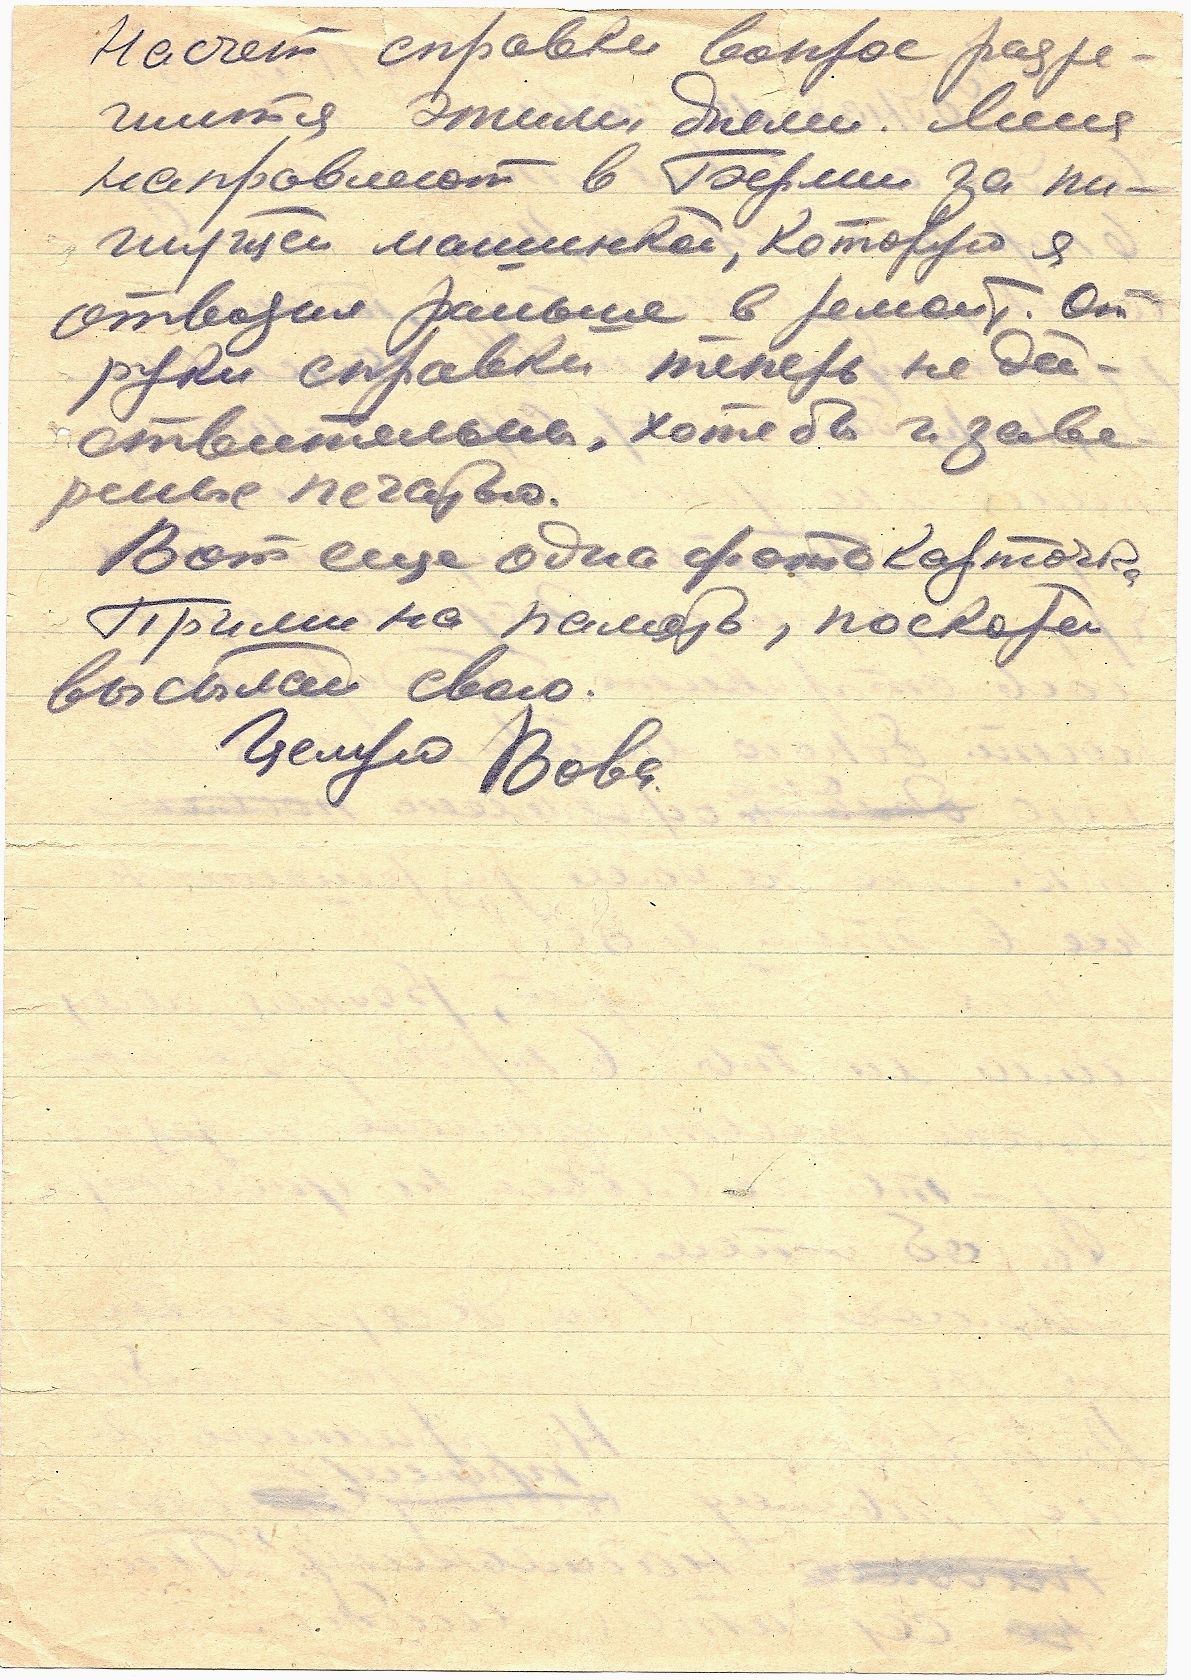 Насчет справки вопрос разре-
шится этими днями. Меня
направляют в Берлин за пи-
шущей машинкой, которую я
отвозил раньше в ремонт. От
руки справки теперь не дей-
ствительны, хотя бы и заве
реные печатью.
Вот еще одна фотокарточка
Прими на память, поскорей
высылай свою.
Целую Вова.